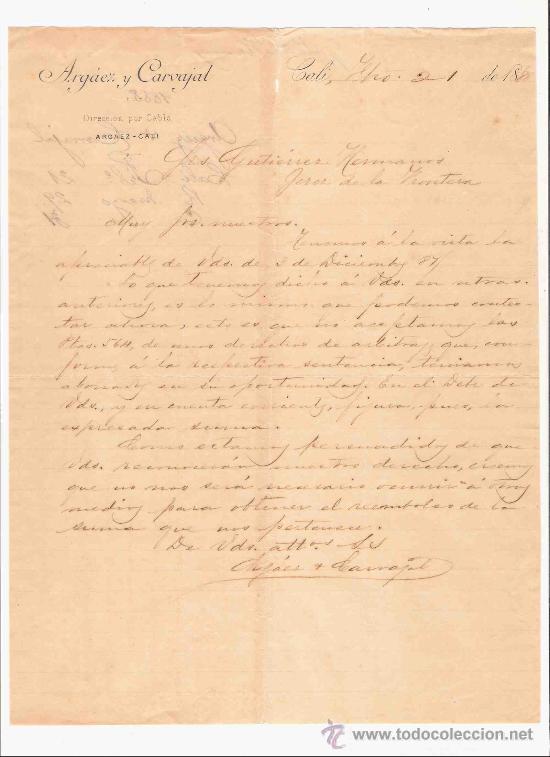 Argáez y Carvajal
Cali, Fbro. 21 de 188
Dirección por Cable
ARGAEZ-CALI
Sres Gutiérrez Hermanos
Jerez de la Frontera
Muy Srs. nuestros.
Tenemos á la vista la
apreciable de Vds. de 3 de Diciembre 87.
Lo que tenemos dicho á Vds. en otras
anteriores, es lo mismo que podemos contes-
tar ahora, esto es que no aceptamos las
Ptas. de unos derechos de arbitraje que, con-
forme á la respectiva sentencia, teníamos
abonadas en su oportunidad. En el Debe de
Vds., y en cuenta corriente, figura, pues, la
expresada suma.
Como estamos persuadidos de que
Vds. reconocerán nuestro derecho, creemos
que no nos será necesario ocurrir á otros
medios para obtener el reembolso de la
suma que nos pertenece.
De Vds. attos. Ss
Argáez & Carvajal
www.todocoleccion.net